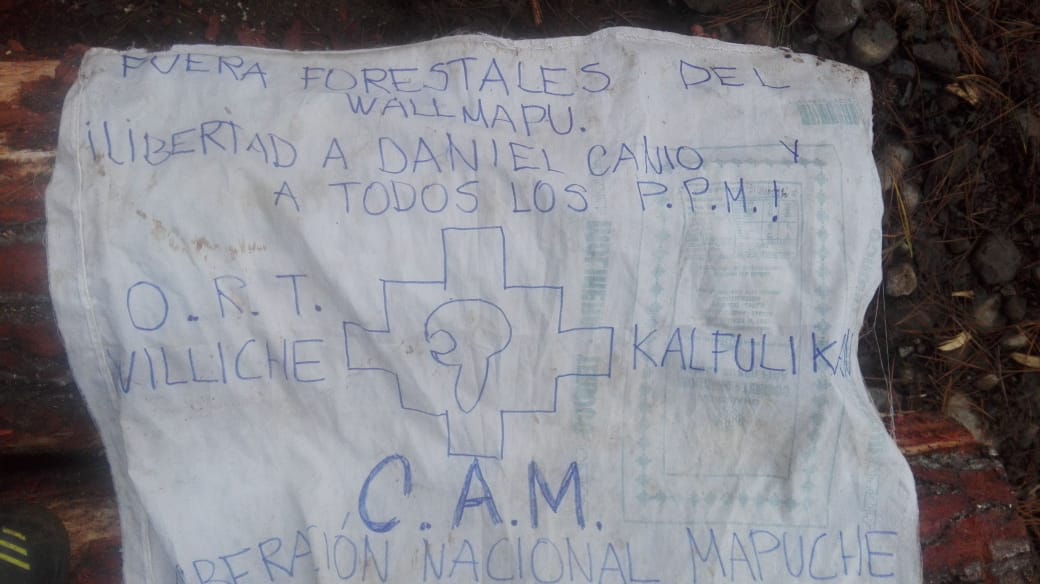 FUERA FORESTALES DEL
WALLMAPU.
¡LIBERTAD A DANIEL CANIO Y
A TODOS LOS P.P.M.!
O.R.T.
VILLICHE
KALFULIKAN
C.A.M.
NACIONAL MAPUCHE